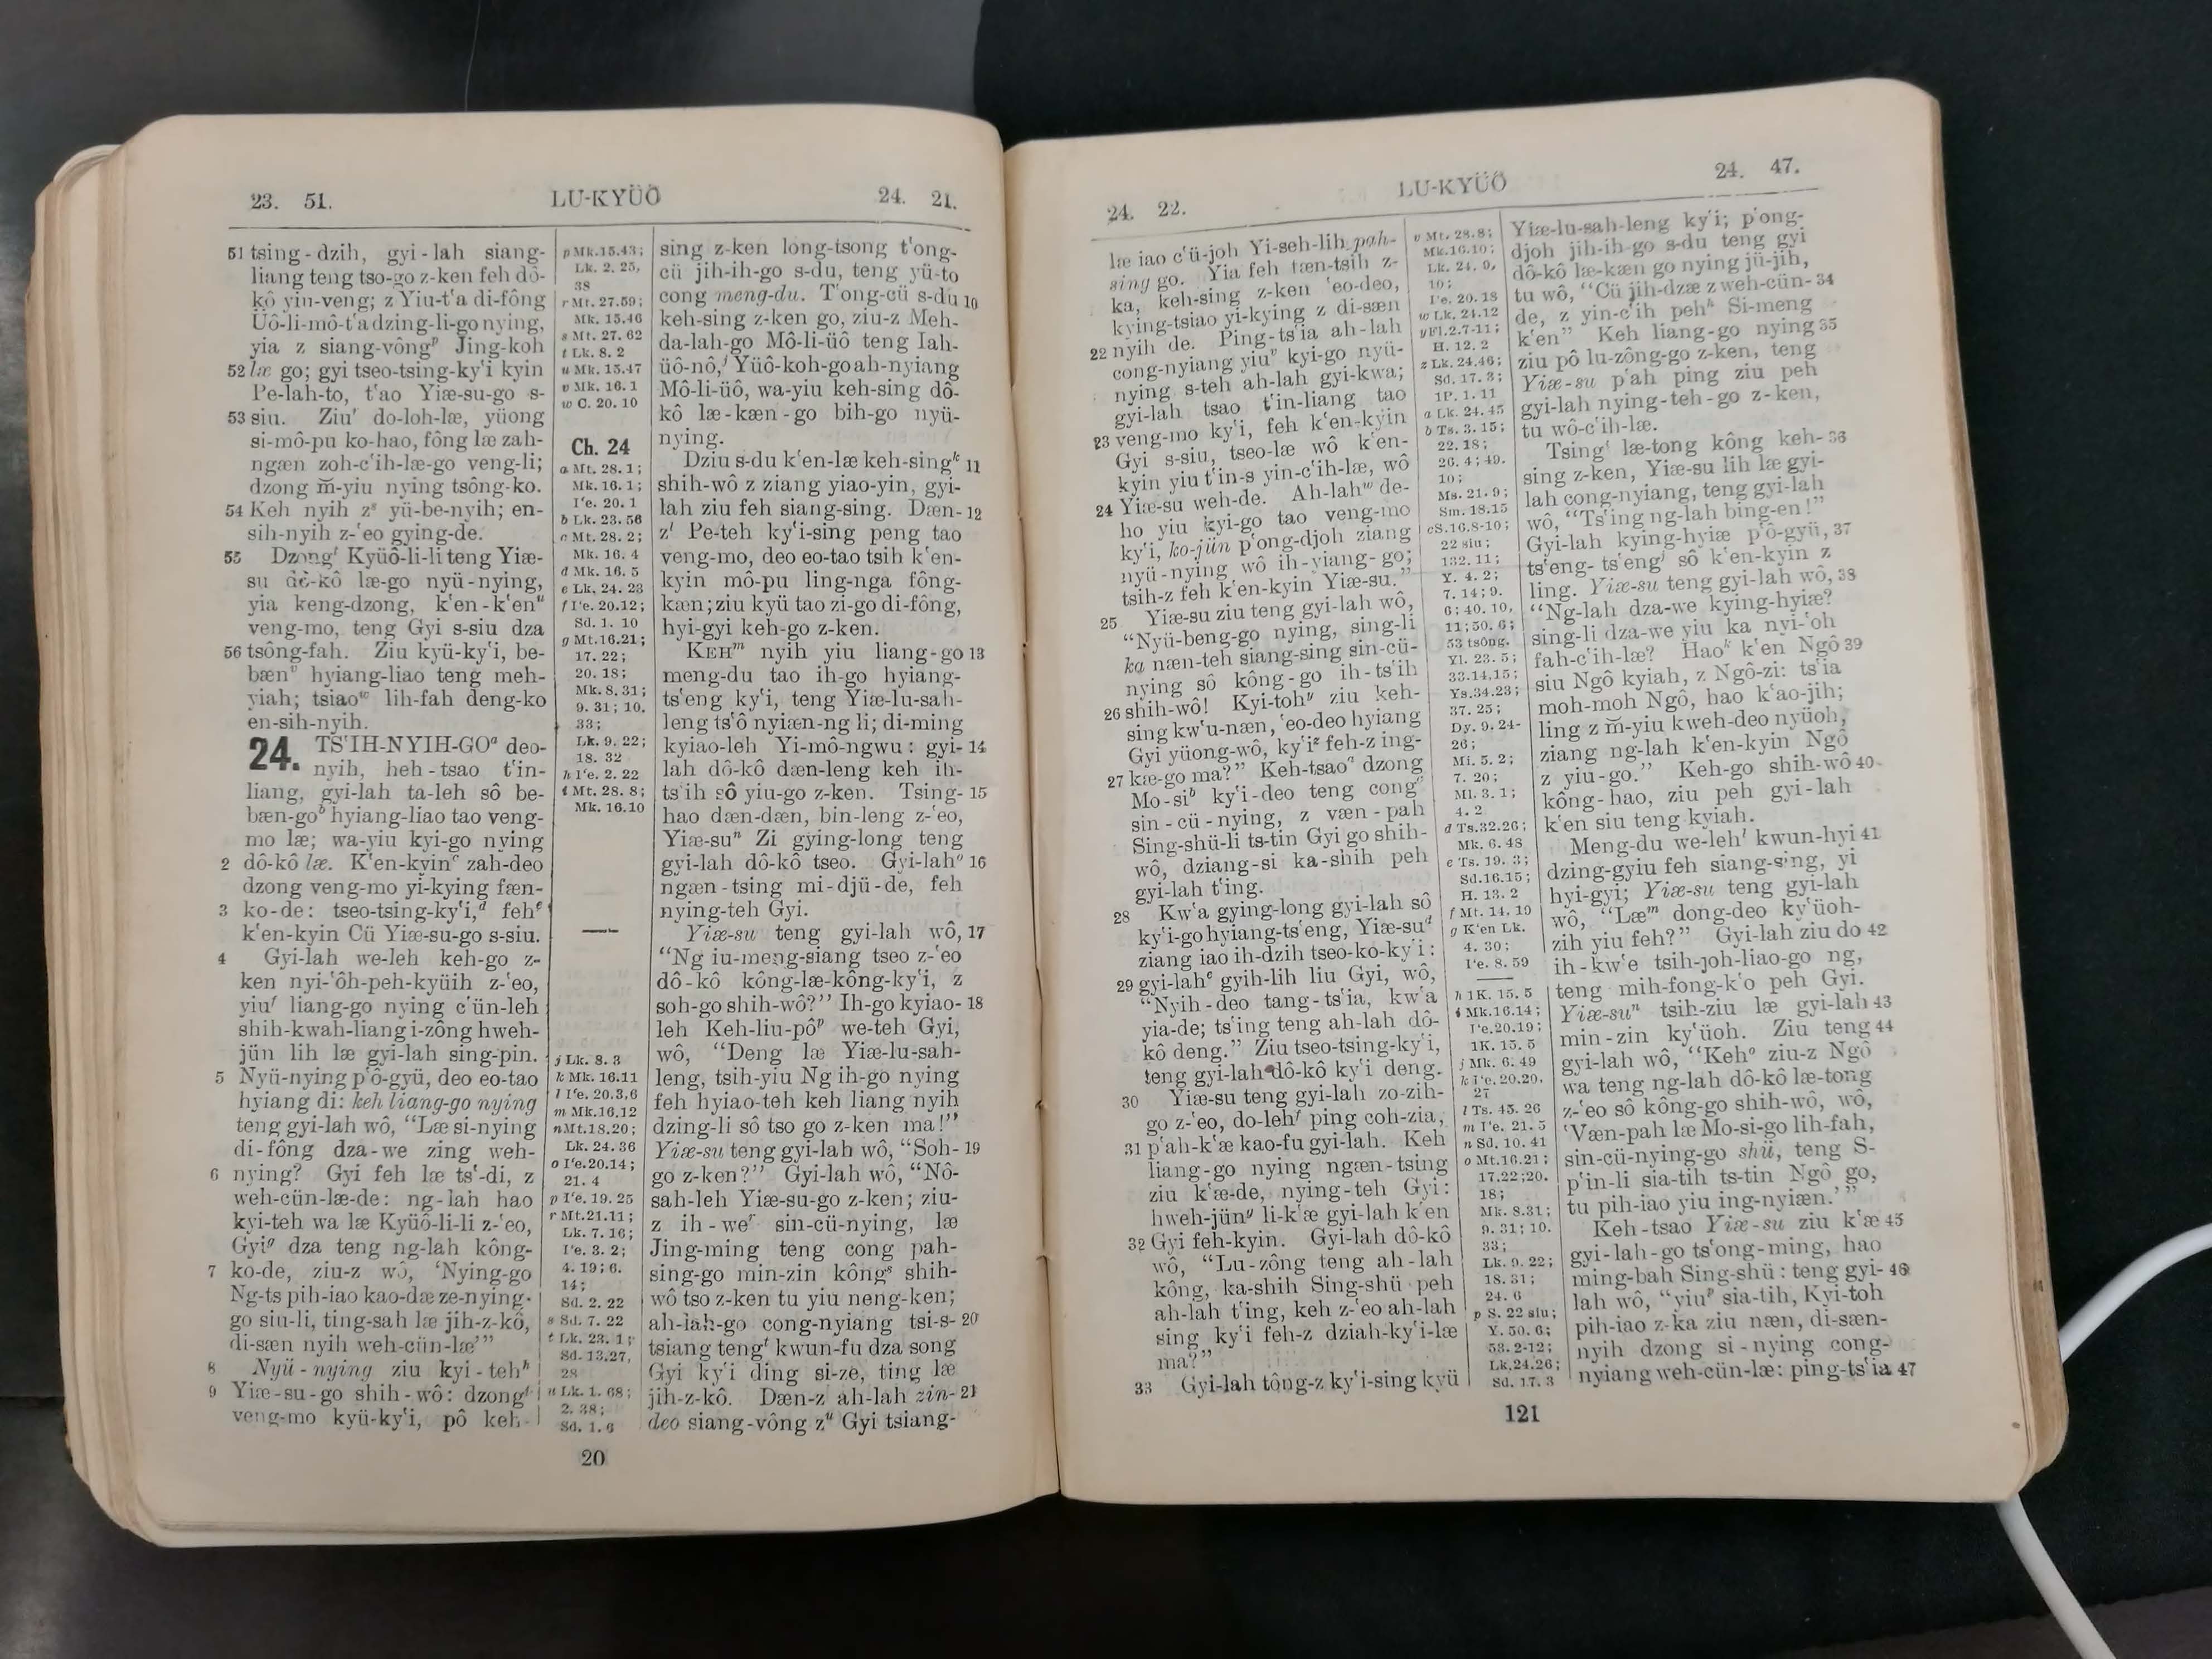 23. 51. LU-KYÜÔ 24. 21.
51 tsing-dzih, gyi-lah siang-
liang teng tso-go z-ken feh dô-
kô yin-veng; z Yiu-t‘a di-fông
Üô-li-mô-t‘a dzing-li-go nying,
yia z siang-vôngᵖ Jing-koh
52 læ go; gyi tseo-tsing-ky‘i kyin
Pe-lah-to, t‘ao Yiæ-su-go s-
53 siu. Ziuʳ do-loh-læ, yüong
si-mô-pu ko-hao, fông læ zah-
ngæn zoh-c‘ih-læ-go veng-li;
dzong m̆-yiu nying tsông-ko.
54 Keh nyih zˢ yü-be-nyih; en-
sih-nyih z-‘eo gying-de.
55 Dzongᵗ Kyüô-li-li teng Yiæ-
su dô-kô læ-go nyü-nying,
yia keng-dzong, k‘en-k‘enᵘ
veng-mo, teng Gyi s-siu dza
56 tsông-fah. Ziu kyü-ky‘i, be-
bænᵛ hyiang-liao teng meh-
yiah; tsiaoʷ lih-fah deng-ko
en-sih-nyih.
24. TS‘IH-NYIH-GOᵃ deo-
nyih, heh-tsao t‘in-
liang, gyi-lah ta-leh sô be-
bæn-goᵇ hyiang-liao tao veng-
mo læ; wa-yiu kyi-go nying
2 dô-kô læ. K‘en-kyinᶜ zah-deo
dzong veng-mo yi-kying fæn-
3 ko-de: tseo-tsing-ky‘i,ᵈ fehᵉ
k‘en-kyin Cü Yiæ-su-go s-siu.
4 Gyi-lah we-leh keh-go z-
ken nyi-‘ôh-peh-kyüih z-‘eo,
yiuᶠ liang-go nying c‘ün-leh
shih-kwah-liang i-zông hweh-
jün lih læ gyi-lah sing-pin.
5 Nyü-nying p‘ô-gyü, deo eo-tao
hyiang di: keh liang-go nying
teng gyi-lah wô, “Læ si-nying
di-fông dza-we zing weh-
6 nying? Gyi feh læ ts‘-di, z
weh-cün-læ-de: ng-lah hao
kyi-teh wa læ Kyüô-li-li z-‘eo,
Gyiᵍ dza teng ng-lah kông-
7 ko-de, ziu-z wô, ‘Nying-go
Ng-ts pih-iao kao-dæ ze-nying-
go siu-li, ting-sah læ jih-z-kô,
di-sæn nyih weh-cün-læ’”
8 Nyü-nying ziu kyi-tehʰ
9 Yiæ-su-go shih-wô: dzongⁱ
veng-mo kyü-ky‘i, pô keh-
p Mk.15.43;
Lk. 2. 25,
38
r Mt. 27.59;
Mk. 15.46
s Mt. 27. 62
t Lk. 8. 2
u Mk. 15.47
v Mk. 16. 1
w C. 20. 10
Ch. 24
a Mt. 28. 1;
Mk. 16. 1;
I‘e. 20. 1
b Lk. 23. 56
c Mt. 28. 2;
Mk. 16. 4
d Mk. 16. 5
e Lk. 24. 23
f I‘e. 20.12;
Sd. 1. 10
g Mt.16.21;
17. 22;
20. 18;
Mk. 8. 31;
9. 31; 10.
33;
Lk. 9. 22;
18. 32
h I‘e. 2. 22
i Mt. 28. 8;
Mk. 16.10
j Lk. 8. 3
k Mk. 16.11
l I‘e. 20.3,6
m Mk.16.12
n Mt.18.20;
Lk. 24. 36
o I‘e.20.14;
21. 4
p I‘e. 19. 25
r Mt.21.11;
Lk. 7. 16;
I‘e. 3. 2;
4. 19; 6.
14;
Sd. 2. 22
s Sd. 7. 22
t Lk. 23. 1;
Sd. 13.27,
28
u Lk. 1. 68;
2. 38;
Sd. 1. 6
sing z-ken long-tsong t‘ong-
cü jih-ih-go s-du, teng yü-to
cong meng-du. T‘ong-cü s-du 10
keh-sing z-ken go, ziu-z Meh-
da-lah-go Mô-li-üô teng Iah-
üô-nô,ʲ Yüô-koh-go ah-nyiang
Mô-li-üô, wa-yiu keh-sing dô-
kô læ-kæn-go bih-go nyü-
nying.
Dziu s-du k‘en-læ keh-singᵏ 11
shih-wô z ziang yiao-yin, gyi-
lah ziu feh siang-sing. Dæn- 12
zˡ Pe-teh ky‘i-sing peng tao
veng-mo, deo eo-tao tsih k‘en-
kyin mô-pu ling-nga fông-
kæn; ziu kyü tao zi-go di-fông,
hyi-gyi keh-go z-ken.
KEHᵐ nyih yiu liang-go 13
meng-du tao ih-go hyiang-
ts‘eng ky‘i, teng Yiæ-lu-sah-
leng ts‘ô nyiæn-ng li; di-ming
kyiao-leh Yi-mô-ngwu: gyi- 14
lah dô-kô dæn-leng keh ih-
ts‘ih sô yiu-go z-ken. Tsing- 15
hao dæn-dæn, bin-leng z-‘eo,
Yiæ-suⁿ Zi gying-long teng
gyi-lah dô-kô tseo. Gyi-lahᵒ 16
ngæn-tsing mi-djü-de, feh
nying-teh Gyi.
Yiæ-su teng gyi-lah wô, 17
“Ng iu-meng-siang tseo z-‘eo
dô-kô kông-læ-kông-ky‘i, z
soh-go shih-wô?” Ih-go kyiao- 18
leh Keh-liu-pôᵖ we-teh Gyi,
wô, “Deng læ Yiæ-lu-sah-
leng, tsih-yiu Ng ih-go nying
feh hyiao-teh keh liang nyih
dzing-li sô tso go z-ken ma!”
Yiæ-su teng gyi-lah wô, “Soh- 19
go z-ken?” Gyi-lah wô, “Nô-
sah-leh Yiæ-su-go z-ken; ziu-
z ih-weʳ sin-cü-nying, læ
Jing-ming teng cong pah-
sing-go min-zin kôngˢ shih-
wô tso z-ken tu yiu neng-ken;
ah-lah-go cong-nyiang tsi-s- 20
tsiang tengᵗ kwun-fu dza song
Gyi ky‘i ding si-ze, ting læ
jih-z-kô. Dæn-z ah-lah zin- 21
deo siang-vông zᵘ Gyi tsiang-
20
24. 22. LU-KYÜÔ 24. 47.
læ iao c‘ü-joh Yi-seh-lih pah-
sing go. Yia feh tæn-tsih z-
ka, keh-sing z-ken ‘eo-deo,
kying-tsiao yi-kying z di-sæn
22 nyih de. Ping-ts‘ia ah-lah
cong-nyiang yiuᵛ kyi-go nyü-
nying, s-teh ah-lah gyi-kwa;
gyi-lah tsao t‘in-liang tao
23 veng-mo ky‘i, feh k‘en-kyin
Gyi s-siu, tseo-læ wô k‘en-
kyin yiu t‘in-s yin-c‘ih-læ, wô
24 Yiæ-su weh-de. Ah-lahʷ de-
ho yiu kyi-go tao veng-mo
ky‘i, ko-jün p‘ong-djoh ziang
nyü-nying wô ih-yiang-go;
tsih-z feh k‘en-kyin Yiæ-su.”
25 Yiæ-su ziu teng gyi-lah wô,
“Nyü-beng-go nying, sing-li
ka næn-teh siang-sing sin-cü-
nying sô kông-go ih-ts‘ih
26 shih-wô! Kyi-tohʸ ziu keh-
sing kw‘u-næn, ‘eo-deo hyiang
Gyi yüong-wô, ky‘iᶻ feh-z ing-
27 kæ-go ma?” Keh-tsaoᵃ dzong
Mo-siᵇ ky‘i-deo teng congᶜ
sin-cü-nying, z væn-pah
Sing-shü-li ts-tin Gyi go shih-
wô, dziang-si ka-shih peh
gyi-lah t‘ing.
28 Kw‘a gying-long gyi-lah sô
ky‘i-go hyiang-ts‘eng, Yiæ-suᵈ
ziang iao ih-dzih tseo-ko-ky‘i:
29 gyi-lahᵉ gyih-lih liu Gyi, wô,
“Nyih-deo tang-ts‘ia, kw‘a
yia-de; ts‘ing teng ah-lah dô-
kô deng.” Ziu tseo-tsing-ky‘i,
teng gyi-lah dô-kô ky‘i deng.
30 Yiæ-su teng gyi-lah zo-zih-
go z-‘eo, do-lehᶠ ping coh-zia,
31 p‘ah-k‘æ kao-fu gyi-lah. Keh
liang-go nying ngæn-tsing
ziu k‘æ-de, nying-teh Gyi:
hweh-jünᵍ li-k‘æ gyi-lah k‘en
32 Gyi feh-kyin. Gyi-lah dô-kô
wô, “Lu-zông teng ah-lah
kông, ka-shih Sing-shü peh
ah-lah t‘ing, keh z-‘eo ah-lah
sing ky‘i feh-z dziah-ky‘i-læ
ma?”
33 Gyi-lah tông-z ky‘i-sing kyü
v Mt. 28. 8;
Mk.16.10;
Lk. 24. 9,
10;
I‘e. 20. 18
w Lk. 24.12
y Fl.2.7-11;
H. 12. 2
z Lk.24.46;
Sd. 17. 3;
1P. 1. 11
a Lk. 24. 45
b Ts. 3. 15;
22. 18;
26. 4; 49.
10;
Ms. 21. 9;
Sm. 18.15
c S.16.8-10;
22 siu;
132. 11;
Y. 4. 2;
7. 14; 9.
6; 40. 10,
11; 50. 6;
53 tsông.
Yl. 23. 5;
33.14,15;
Ys.34.23;
37. 25;
Dy. 9. 24-
26;
Mi. 5. 2;
7. 20;
Ml. 3. 1;
4. 2
d Ts.32.26;
Mk. 6. 48
e Ts. 19. 3;
Sd.16.15;
H. 13. 2
f Mt. 14. 19
g K‘en Lk.
4. 30;
I‘e. 8. 59
h 1K. 15. 5
i Mk.16.14;
I‘e.20.19;
1K. 15. 5
j Mk. 6. 49
k I‘e. 20.20,
27
l Ts. 45. 26
m I‘e. 21. 5
n Sd. 10. 41
o Mt.16.21;
17.22;20.
18;
Mk. 8.31;
9. 31; 10.
33;
Lk. 9. 22;
18. 31;
24. 6
p S. 22 siu;
Y. 50. 6;
53. 2-12;
Lk.24.26;
Sd. 17. 3
Yiæ-lu-sah-leng ky‘i; p‘ong-
djoh jih-ih-go s-du teng gyi
dô-kô læ-kæn go nying jü-jih,
tu wô, “Cü jih-dzæ z weh-cün- 34
de, z yin-c‘ih pehʰ Si-meng
k‘en” Keh liang-go nying 35
ziu pô lu-zông-go z-ken, teng
Yiæ-su p‘ah ping ziu peh
gyi-lah nying-teh-go z-ken,
tu wô-c‘ih-læ.
Tsingⁱ læ-tong kông keh- 36
sing z-ken, Yiæ-su lih læ gyi-
lah cong-nyiang, teng gyi-lah
wô, “Ts‘ing ng-lah bing-en!”
Gyi-lah kying-hyiæ p‘ô-gyü, 37
ts‘eng-ts‘engʲ sô k‘en-kyin z
ling. Yiæ-su teng gyi-lah wô, 38
“Ng-lah dza-we kying-hyiæ?
sing-li dza-we yiu ka nyi-‘oh
fah-c‘ih-læ? Haoᵏ k‘en Ngô 39
siu Ngô kyiah, z Ngô-zi: ts‘ia
moh-moh Ngô, hao k‘ao-jih;
ling z m̆-yiu kweh-deo nyüoh,
ziang ng-lah k‘en-kyin Ngô
z yiu-go.” Keh-go shih-wô 40
kông-hao, ziu peh gyi-lah
k‘en siu teng kyiah.
Meng-du we-lehˡ kwun-hyi 41
dzing-gyiu feh siang-sing, yi
hyi-gyi; Yiæ-su teng gyi-lah
wô, “Læᵐ dong-deo ky‘üoh-
zih yiu feh?” Gyi-lah ziu do 42
ih-kw‘e tsih-joh-liao-go ng,
teng mih-fong-k‘o peh Gyi.
Yiæ-suⁿ tsih-ziu læ gyi-lah 43
min-zin ky‘üoh. Ziu teng 44
gyi-lah wô, “Kehᵒ ziu-z Ngô
wa teng ng-lah dô-kô læ-tong
z-‘eo sô kông-go shih-wô, wô,
‘Væn-pah læ Mo-si-go lih-fah,
sin-cü-nying-go shü, teng S-
p‘in-li sia-tih ts-tin Ngô go,
tu pih-iao yiu ing-nyiæn.’”
Keh-tsao Yiæ-su ziu k‘æ 45
gyi-lah-go ts‘ong-ming, hao
ming-bah Sing-shü: teng gyi- 46
lah wô, “yiuᵖ sia-tih, Kyi-toh
pih-iao z-ka ziu næn, di-sæn-
nyih dzong si-nying cong-
nyiang weh-cün-læ: ping-ts‘ia 47
121